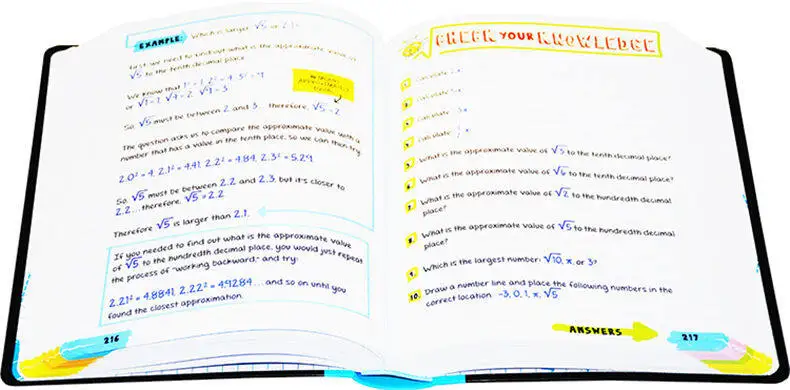 EXAMPLE: Which is larger √5 or 2.1?
First we need to find out what is the approximate value of
√5 to the tenth decimal place.
We know that
So, √5 must be between 2 and 3... therefore, √5 ≈ 2
The question asks us to compare the approximate value with a
number that has a value in the tenth place, so we can then try:
2.0² = 4, 2.1² = 4.41, 2.2² = 4.84, 2.3² = 5.29.
So, √5 must be between 2.2 and 2.3, but it's closer to
2.2... therefore, √5 ≈ 2.2
Therefore √5 is larger than 2.1.
If you needed to find out what is the approximate value
of √5 to the hundredth decimal place, you would just repeat
the process of "working backward," and try:
2.21² = 4.8841, 2.22² = 4.9284... and so on until you
found the closest approximation.
216
CHECK YOUR KNOWLEDGE
1. Calculate
2. Calculate
3. Calculate
4. Calculate
5. What is the approximate value of √5 to the tenth decimal place?
6. What is the approximate value of √6 to the tenth decimal place?
7. What is the approximate value of √2 to the hundredth decimal
place?
8. What is the approximate value of √5 to the hundredth decimal
place?
9. Which is the largest number: √10, π, or 3?
10. Draw a number line and place the following numbers in the
correct location: -3, 0, 1, π, √5
ANSWERS
217